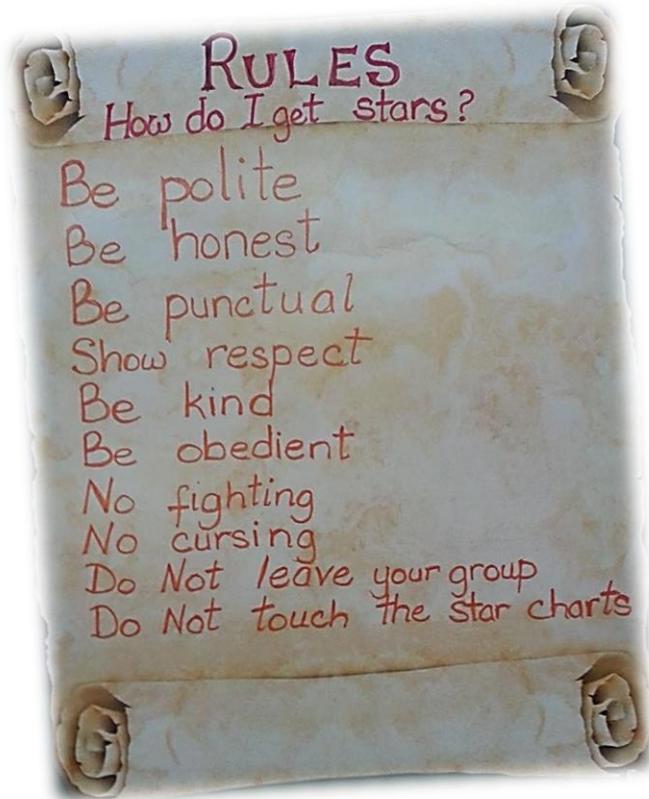 RULES
How do I get stars?
Be polite
Be honest
Be punctual
Show respect
Be kind
Be obedient
No fighting
No cursing
Do Not leave your group
Do Not touch the star charts